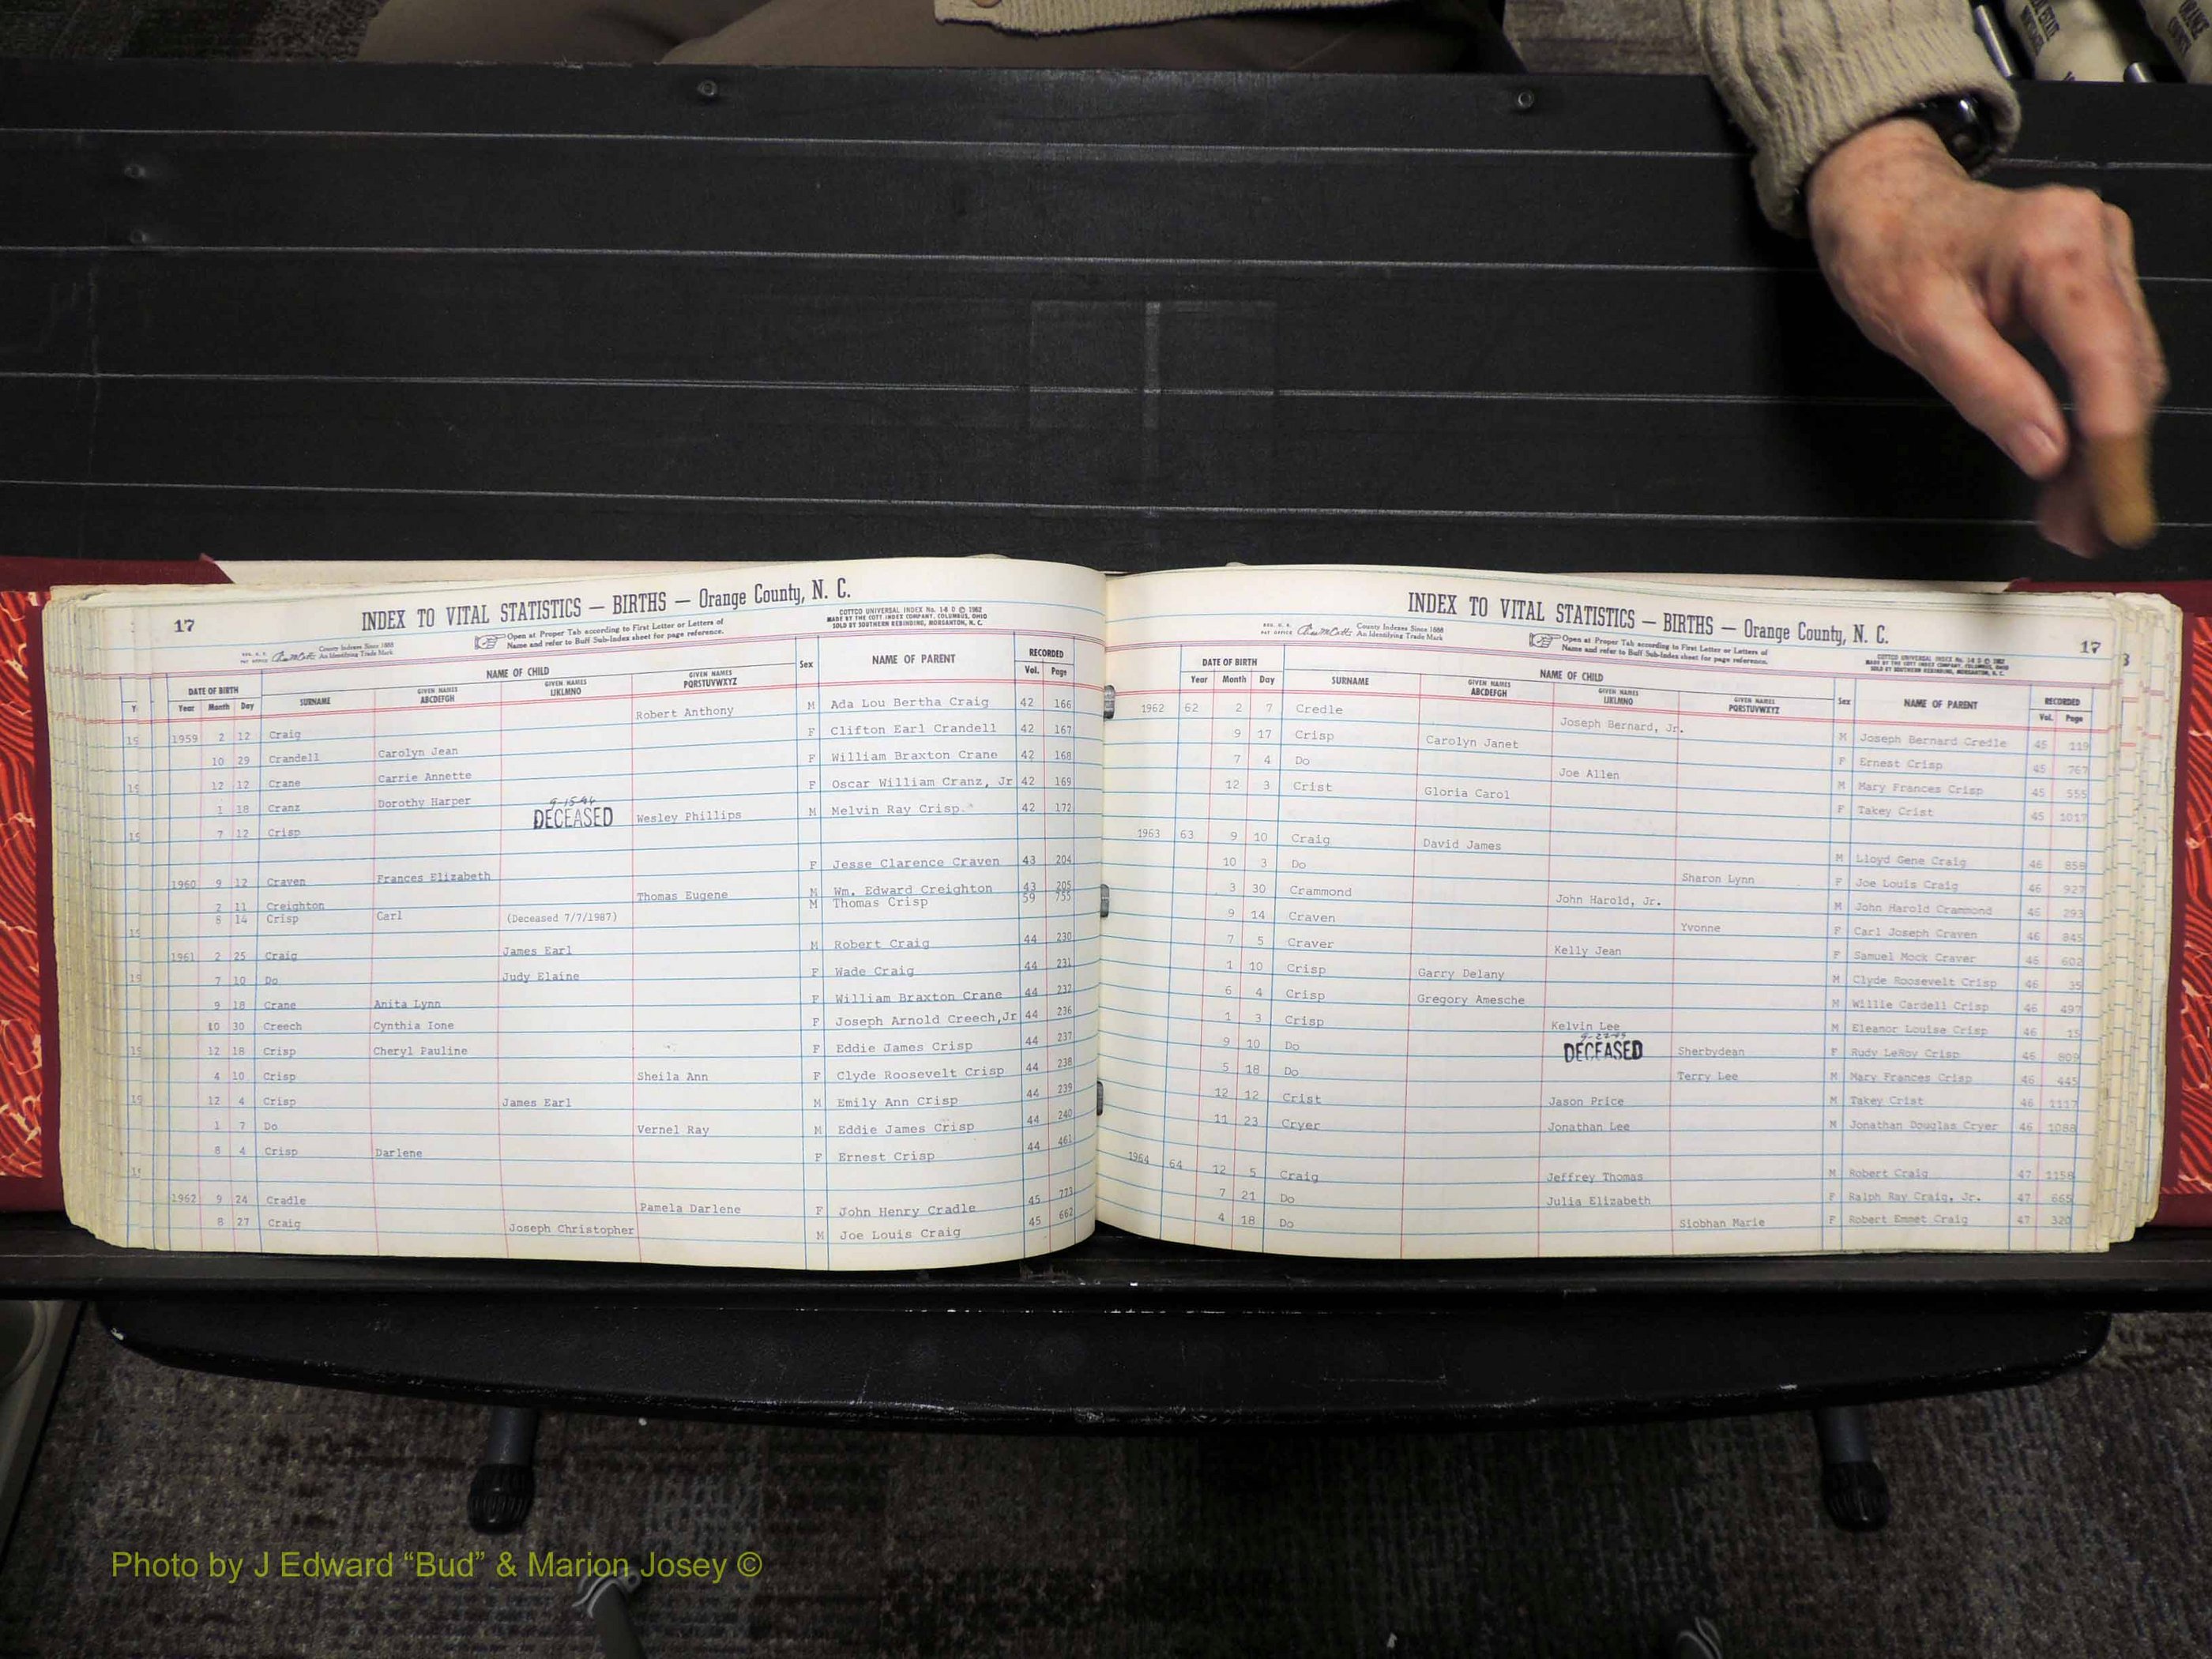 17
INDEX TO VITAL STATISTICS — BIRTHS — Orange County, N. C.
COTTCO UNIVERSAL INDEX No. 14 D © 1962
MADE BY THE COTT INDEX COMPANY, COLUMBUS, OHIO
SOLD BY SOUTHERN REBINDING, MORGANTON, N. C.
County Indexes Since 1888
An Identifying Trade Mark
Open at Proper Tab according to First Letter or Letters of
Name and refer to Buff Sub-Index sheet for page reference.
DATE OF BIRTH NAME OF CHILD Sex NAME OF PARENT RECORDED
Year Month Day SURNAME GIVEN NAMES ABCDEFGH GIVEN NAMES IJKLMNO GIVEN NAMES PQRSTUVWXYZ Vol. Page
1959 2 12 Craig Robert Anthony M Ada Lou Bertha Craig 42 166
10 29 Crandell Carolyn Jean F Clifton Earl Crandell 42 167
12 12 Crane Carrie Annette F William Braxton Crane 42 168
1 18 Cranz Dorothy Harper F Oscar William Cranz, Jr 42 169
7 12 Crisp DECEASED Wesley Phillips M Melvin Ray Crisp 42 172
1960 9 12 Craven Frances Elizabeth F Jesse Clarence Craven 43 204
2 11 Creighton Thomas Eugene M Wm. Edward Creighton 43 205
8 14 Crisp Carl (Deceased 7/7/1987) M Thomas Crisp 59 755
1961 2 25 Craig James Earl M Robert Craig 44 230
7 10 Do Judy Elaine F Wade Craig 44 231
9 18 Crane Anita Lynn F William Braxton Crane 44 232
10 30 Creech Cynthia Ione F Joseph Arnold Creech,Jr 44 236
12 18 Crisp Cheryl Pauline F Eddie James Crisp 44 237
4 10 Crisp Sheila Ann F Clyde Roosevelt Crisp 44 238
12 4 Crisp James Earl M Emily Ann Crisp 44 239
1 7 Do Vernel Ray M Eddie James Crisp 44 240
8 4 Crisp Darlene F Ernest Crisp 44 461
1962 9 24 Cradle Pamela Darlene F John Henry Cradle 45 773
8 27 Craig Joseph Christopher M Joe Louis Craig 45 662
INDEX TO VITAL STATISTICS — BIRTHS — Orange County, N. C.
17
County Indexes Since 1888
An Identifying Trade Mark
Open at Proper Tab according to First Letter or Letters of
Name and refer to Buff Sub-Index sheet for page reference.
COTTCO UNIVERSAL INDEX No. 14 D © 1962
MADE BY THE COTT INDEX COMPANY, COLUMBUS, OHIO
SOLD BY SOUTHERN REBINDING, MORGANTON, N. C.
DATE OF BIRTH NAME OF CHILD Sex NAME OF PARENT RECORDED
Year Month Day SURNAME GIVEN NAMES ABCDEFGH GIVEN NAMES IJKLMNO GIVEN NAMES PQRSTUVWXYZ Vol. Page
1962 62 2 7 Credle Joseph Bernard, Jr. M Joseph Bernard Credle 45 119
9 17 Crisp Carolyn Janet F Ernest Crisp 45 767
7 4 Do Joe Allen M Mary Frances Crisp 45 555
12 3 Crist Gloria Carol F Takey Crist 45 1017
1963 63 9 10 Craig David James M Lloyd Gene Craig 46 858
10 3 Do Sharon Lynn F Joe Louis Craig 46 927
3 30 Crammond John Harold, Jr. M John Harold Crammond 46 293
9 14 Craven Yvonne F Carl Joseph Craven 46 845
7 5 Craver Kelly Jean F Samuel Mock Craver 46 602
1 10 Crisp Garry Delany M Clyde Roosevelt Crisp 46 35
6 4 Crisp Gregory Amesche M Willie Cardell Crisp 46 497
1 3 Crisp Kelvin Lee M Eleanor Louise Crisp 46 15
9 10 Do DECEASED Sherbydean F Rudy LeRoy Crisp 46 809
5 18 Do Terry Lee M Mary Frances Crisp 46 445
12 12 Crist Jason Price M Takey Crist 46 1117
11 23 Cryer Jonathan Lee M Jonathan Douglas Cryer 46 1088
1964 64 12 5 Craig Jeffrey Thomas M Robert Craig 47 1158
7 21 Do Julia Elizabeth F Ralph Ray Craig, Jr. 47 665
4 18 Do Siobhan Marie F Robert Emmet Craig 47 320
Photo by J Edward “Bud” & Marion Josey ©